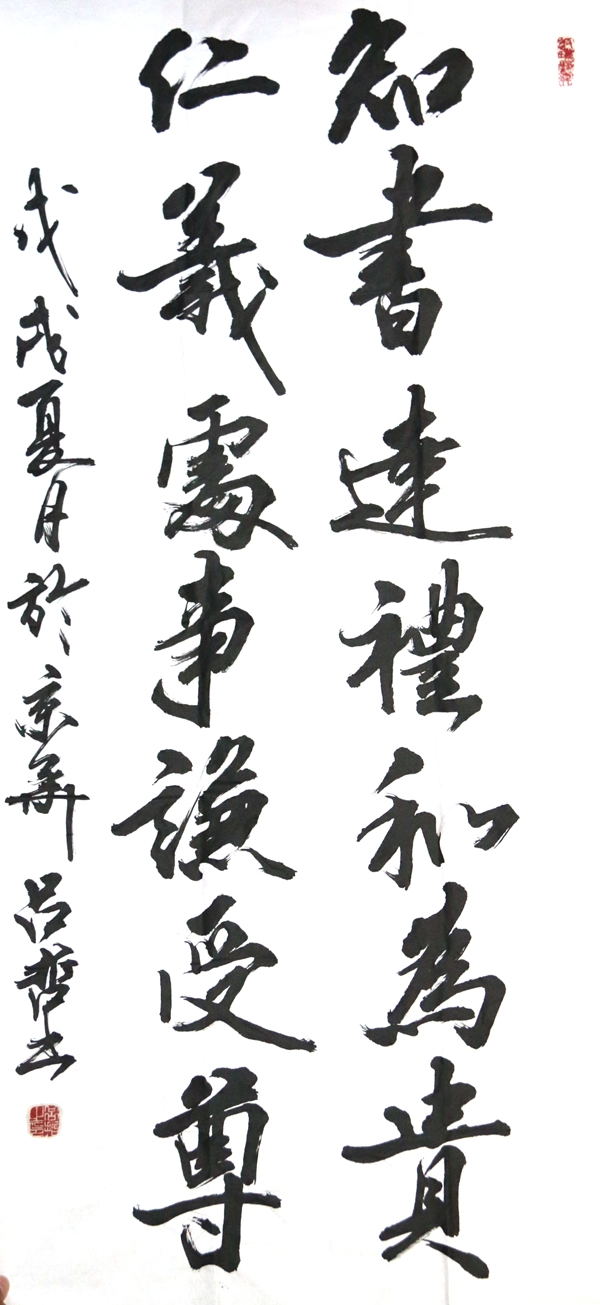 知書達禮和為貴
仁義處事謙受尊
戊戌夏月於京華 呂哲書